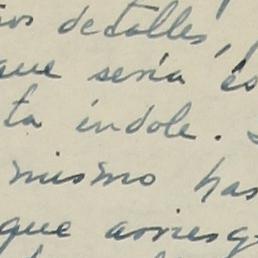 detalles,
que sería
ta índole.
mismo has
que arriesg